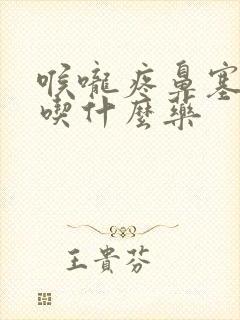 喉嚨疼鼻塞
喫什麼藥
王貴芬